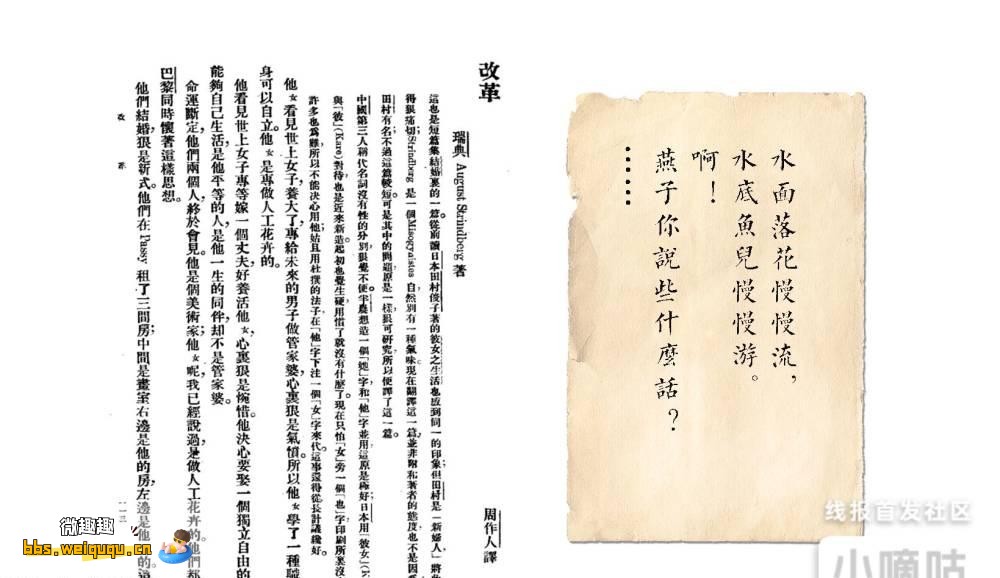 改革
瑞典 August Strindberg 著
周作人譯
這也是短篇集結婚裏的一篇。從前讀日本田村俊子著的彼女之生活也感到同一的印象。但田村是一新婦人
得狠痛切。Strindberg 是一個 Misogynistes 自然別有一種氣味。現在翻譯這一篇，並非附和著者的態度，也不是因
田村有名，不過這篇較短，可是其中的問題原是一樣，狠可研究，所以便譯了這一篇。
中國第三人稱代名詞沒有性的分別，狠覺不便。半農想造一個「她」字，和「他」字並用，這原是極好，日本用「彼女」
與「彼」(Kare)對待，也是近來新造，起初也覺生硬，用慣了就沒有什麼了。現在只怕「女」旁一個「也」字，印刷所裏沒
許多也爲難，所以不能決心用他，姑且用杜撰的法子，在「他」字下注一個「女」字來代。這事還得從長計議纔好。
他女看見世上女子養大了，專給未來的男子做管家婆，心裏狠是氣憤。所以他女學了一種職
身可以自立。他女是專做人工花卉的。
他看見世上女子專等嫁一個丈夫，好養活他女，心裏狠是惋惜。他決心要娶一個獨立自由的
能夠自己生活，是他平等的人，是他一生的同伴，却不是管家婆。
命運斷定他們兩個人，終於會見。他是個美術家，他女呢，我已經說過，是做人工花卉的。他們都
巴黎同時懷著這樣思想。
他們結婚狠是新式。他們在 Passy 租了三間房，中間是畫室，右邊是他的房，左邊是他女的
改革
一一三
水面落花慢慢流，
水底魚兒慢慢游。
啊！
燕子你說些什麼話？
……
微趣趣
bbs.weiququ.cn
线报首发社区
小嘀咕